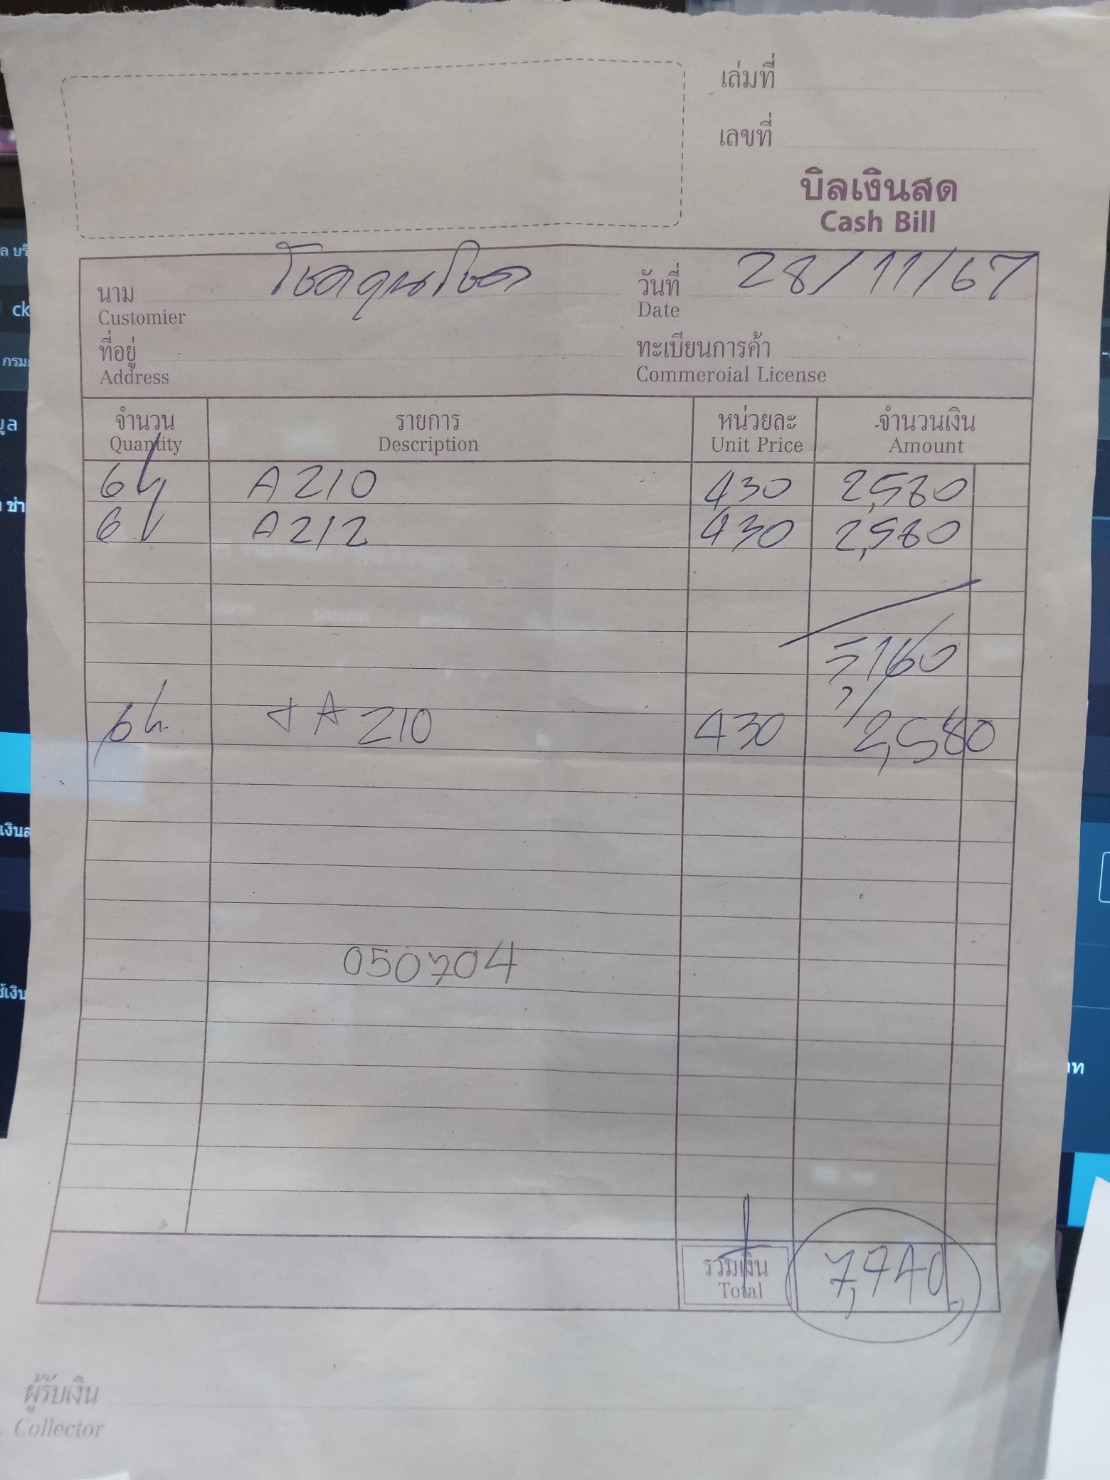 เล่มที่
เลขที่
บิลเงินสด
Cash Bill
นาม โชคคูนโชค วันที่ 28/11/67
Customier Date
ที่อยู่ ทะเบียนการค้า
Address Commeroial License
จำนวน รายการ หน่วยละ จำนวนเงิน
Quantity Description Unit Price Amount
6 A210 430 2,580
6 A212 430 2,580
5,160
6 + A210 430 2,580
050704
รวมเงิน 7,740
Total
ผู้รับเงิน
Collector